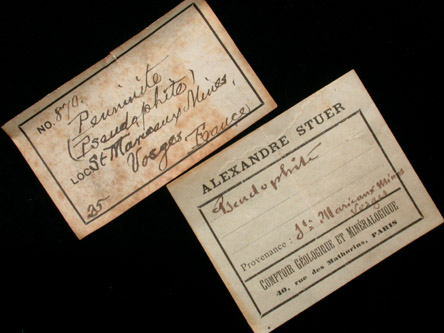 NO. 870.
Penninite
(Pseudophite)
LOC. St Marieaux Mines,
Vosges, France
25-
ALEXANDRE STUER
Pseudophite
Provenance: Ste Marieaux Mines
Vosges
COMPTOIR GÉOLOGIQUE ET MINÉRALOGIQUE
40, rue des Mathurins, PARIS